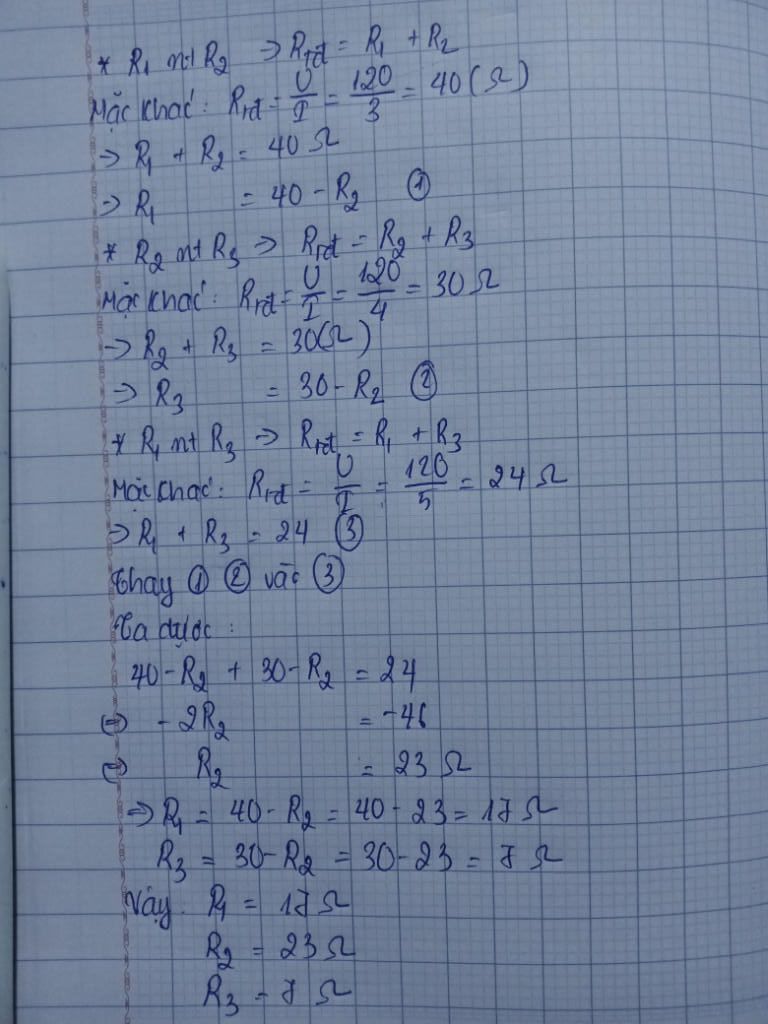 * R₁ nt R₂ => Rtđ = R₁ + R₂
Mặc khác: Rtđ = U/I = 120/3 = 40(Ω)
=> R₁ + R₂ = 40Ω
=> R₁ = 40 - R₂ ①
* R₂ nt R₃ => Rtđ = R₂ + R₃
Mặc khác: Rtđ = U/I = 120/4 = 30Ω
=> R₂ + R₃ = 30(Ω)
=> R₃ = 30 - R₂ ②
* R₁ nt R₃ => Rtđ = R₁ + R₃
Mặc khác: Rtđ = U/I = 120/5 = 24Ω
=> R₁ + R₃ = 24 ③
Thay ① ② vào ③
Ta được:
40 - R₂ + 30 - R₂ = 24
⇔ - 2R₂ = -46
⇔ R₂ = 23Ω
=> R₁ = 40 - R₂ = 40 - 23 = 17Ω
R₃ = 30 - R₂ = 30 - 23 = 7Ω
Vậy: R₁ = 17Ω
R₂ = 23Ω
R₃ = 7Ω